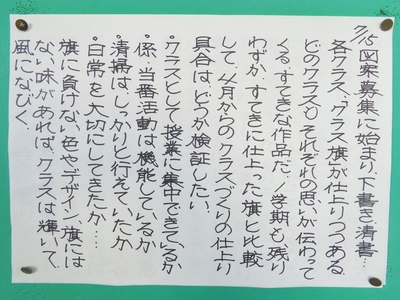 7/15図案募集に始まり、下書き、清書…
各クラス、クラス旗が仕上りつつある。
どのクラスもそれぞれの思いが伝わって
くる、すてきな作品だ。1学期も残り
わずか、すてきに仕上った旗と比較
して、4月からのクラスづくりの仕上り
具合はどうか検証したい。
・クラスとして授業に集中できているか
・係・当番活動は機能しているか
・清掃はしっかりと行えていたか
・日常を大切にしてきたか……
旗に負けない色やデザイン、旗には
ない味があれば、クラスは輝いて、
風になびく。